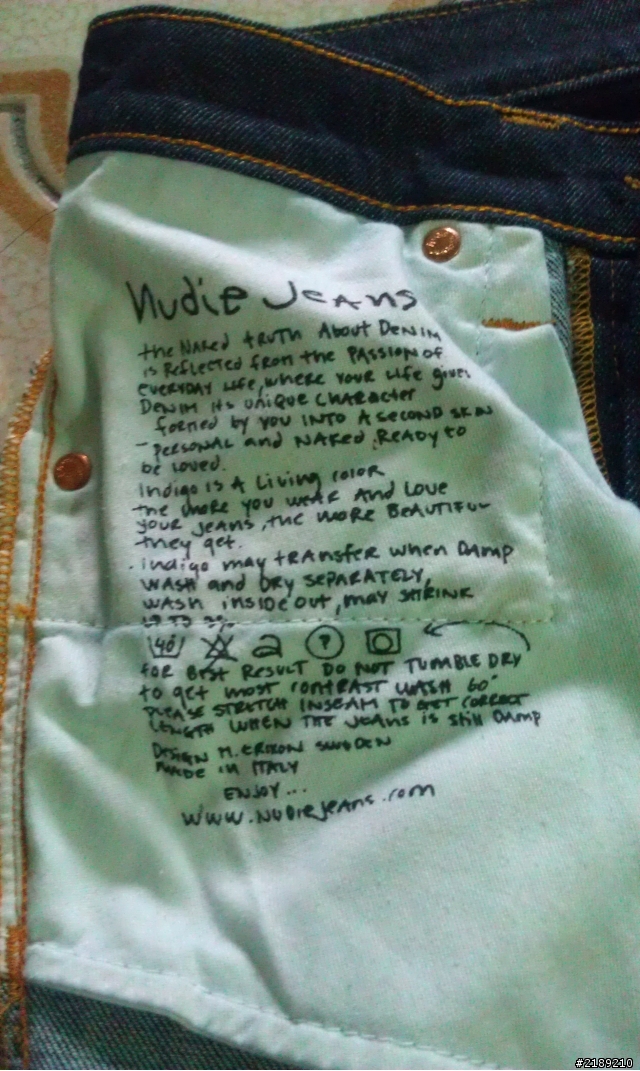 Nudie Jeans
the Naked truth About Denim
is Reflected from the Passion of
everyday life, where your life gives
Denim its unique character
formed by you into a second skin
- personal and naked, ready to
be loved.
Indigo is A Living color
the more you wear and love
your jeans, the more beautiful
they get.
. indigo may transfer when damp
wash and dry separately,
wash inside out, may shrink
40
for best result do not tumble dry
to get most contrast wash 60°
please stretch inseam to get correct
length when the jeans is still damp
Design M. Erixon Sweden
Made in Italy
Enjoy...
www.nudiejeans.com
#2189210